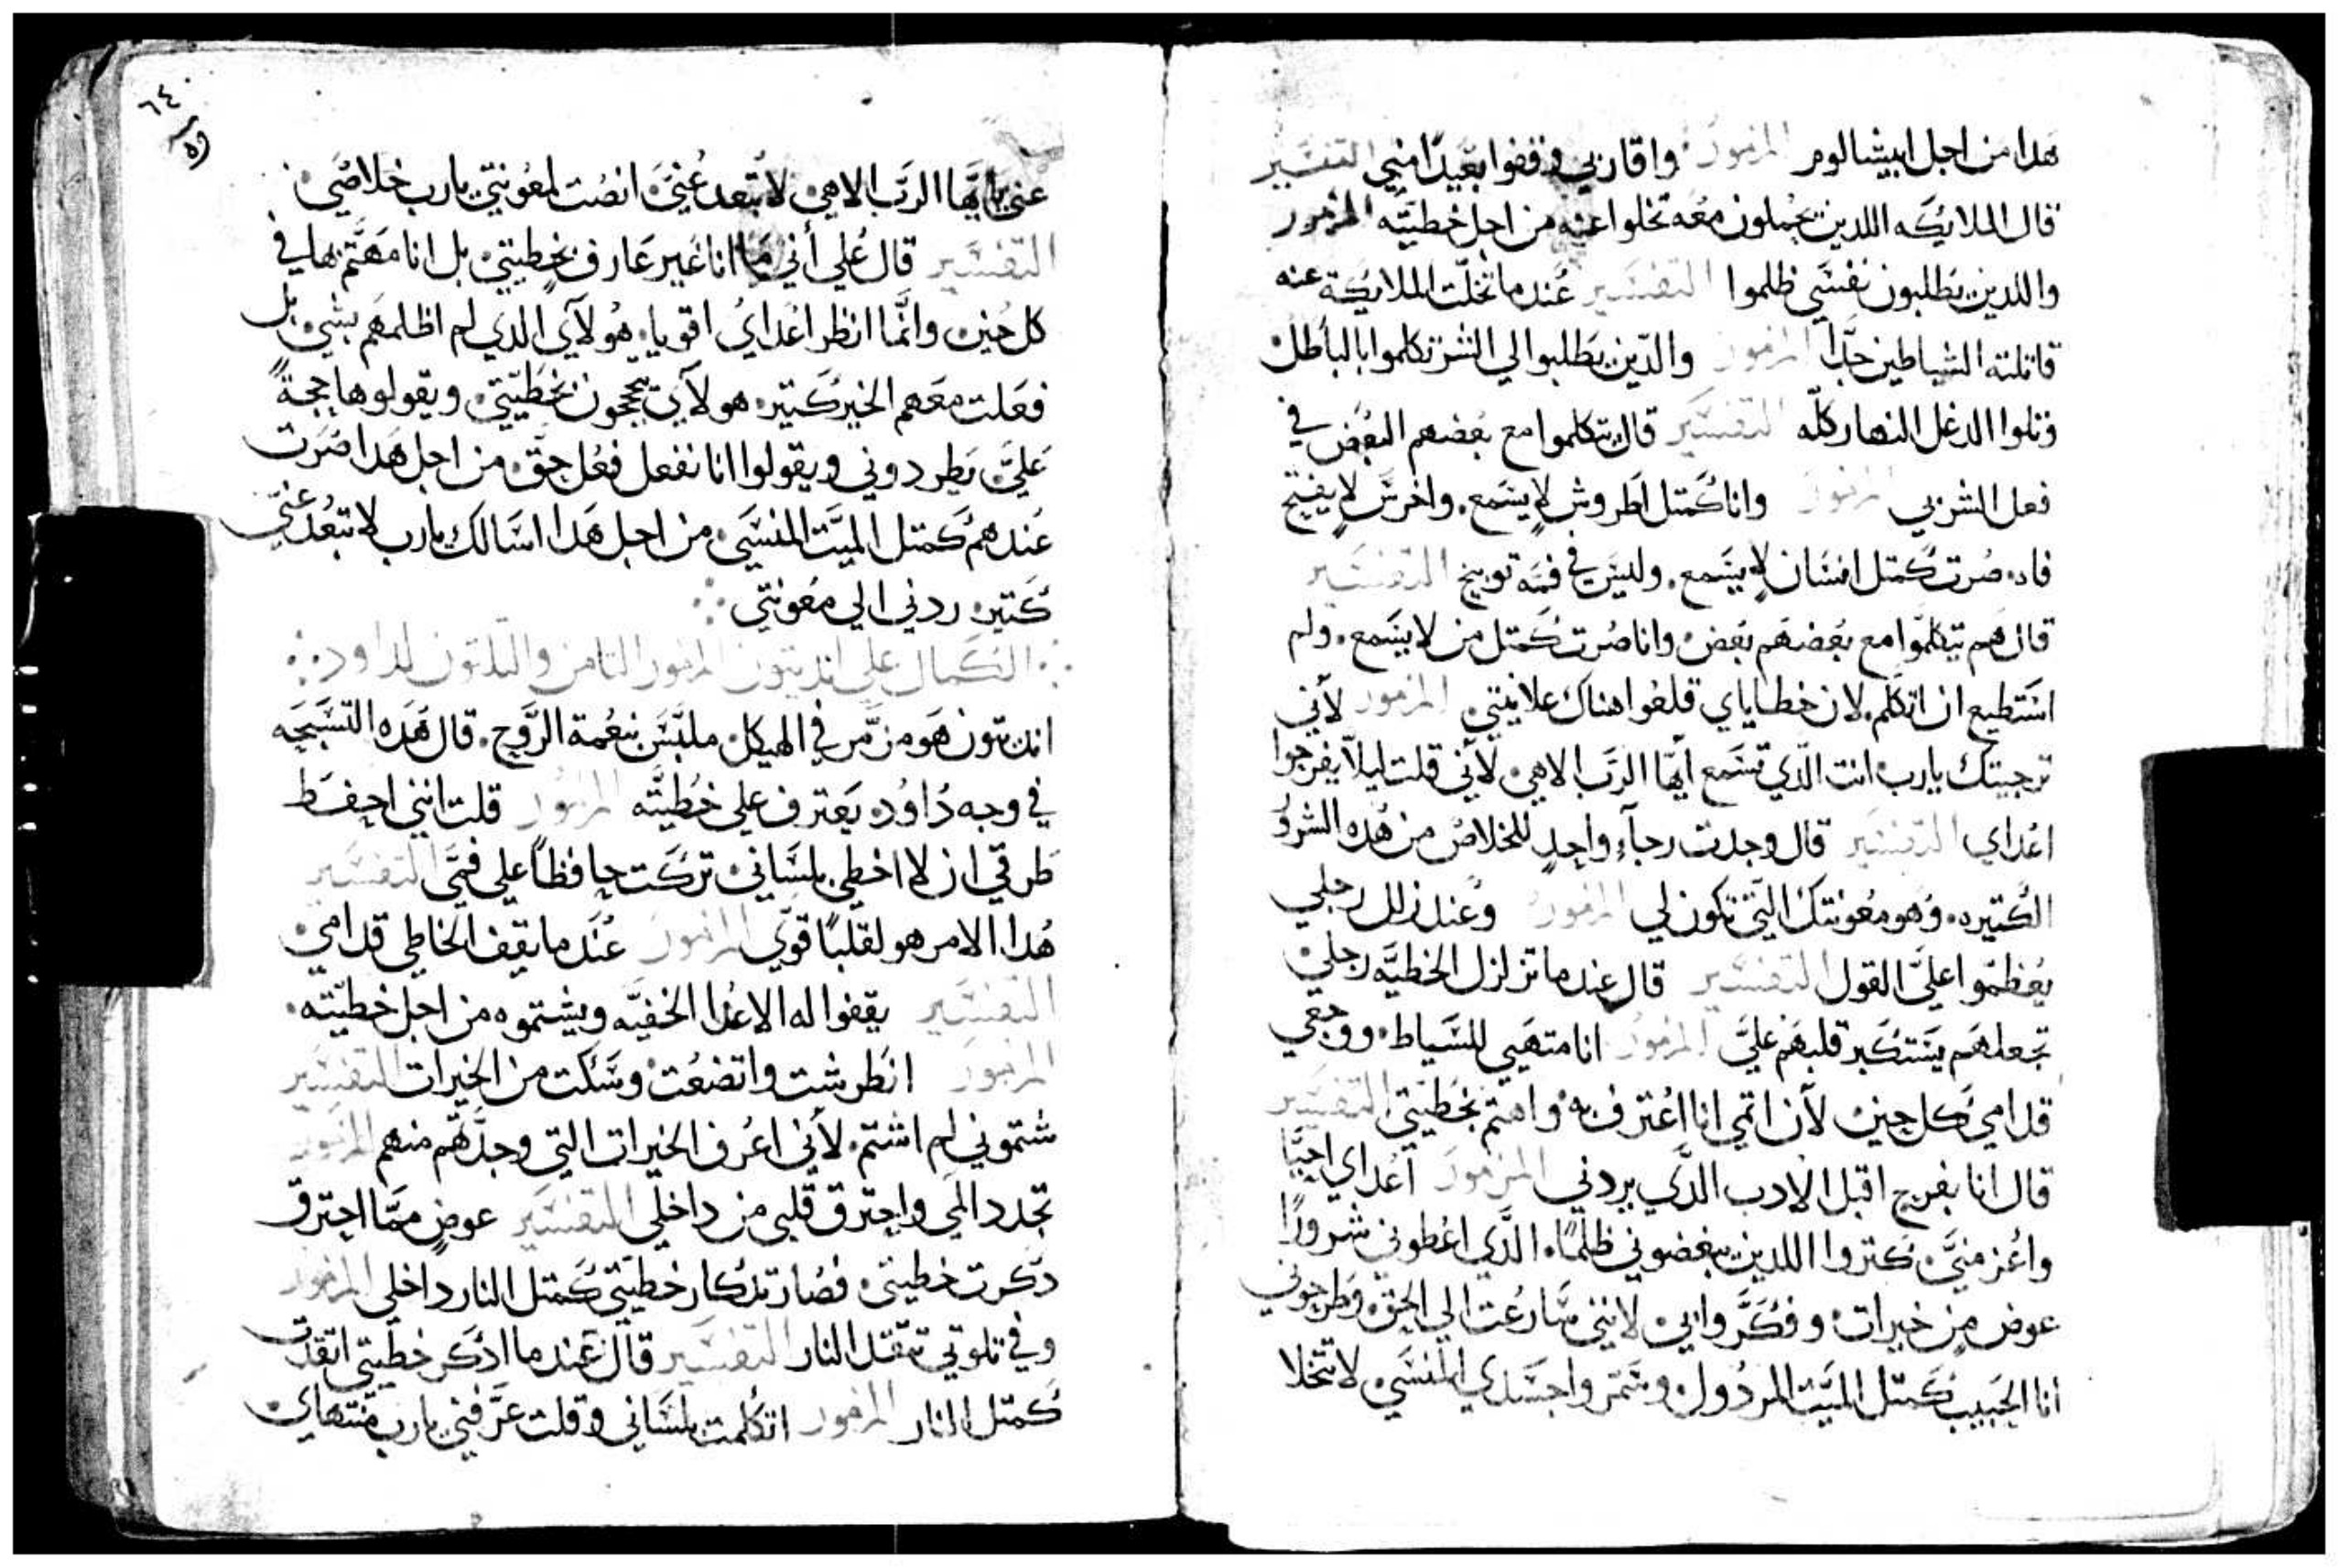 هدا من اجل ابيشالوم المزمور واقاربي وقفوا بعيدًا مني التفسير
قال الملايكه اللدين يحبلون معه تخلوا عنه من اجل خطيته المزمور
واللدين يطلبون نفسي ظلموا التفسير عندما تخلت الملايكة عنه
قاتلته الشياطين جدًا المزمور والدين يطلبوا لي الشر تكلموا بالباطل
وتلوا الدغل النهار كله التفسير قال يتكلموا مع بعضهم البعض في
فعل الشر بي المزمور وانا كمتل اطروش لا يسمع. واخرس لا يفتح
فاه. صرت كمتل انسان لا يسمع. وليس في فمه توبيخ التفسير
قال هم يتكلموا مع بعضهم بعض وانا صرت كمتل من لا يسمع. ولم
استطيع ان اتكلم. لان خطاياي قلعوا هناك علانيتي المزمور لأني
ترجيتك يارب انت الدي تسمع أيها الرب الاهي لأني قلت ليلا يفرحوا
اعداي التفسير قال وجدت رجاءٍ واحدٍ للخلاص من هده الشرور
الكتيره. وهو معونتك التي تكون لي المزمور وعند زلل رجلي
يعظموا عليَّ القول التفسير قال عندما تزلزل الخطيه رجلي
تجعلهم يستكبر قلبهم عليَّ المزمور انا متهيي للسياط. ووجعي
قدامي كل حين لأن اتمي انا اعترف به واهتم بخطيتي التفسير
قال انا بفرح اقبل الادب الدي يردني المزمور أعداي احيا
واعز مني كتروا اللدين يبغضوني ظلمًا. الدي اعطوني شرورًا
عوض من خيرات وفكروا بي لانني سارعت الي الحق وطرحوني
انا الحبيب كمتل الميت المردول وسمروا جسدي المنسي لا تتخلا
٦٤
عني يا ايها الرب الاهي لا تبعد عني انصت لمعونتي يارب خلاصي
التفسير قال علي أني ما انا غير عارف بخطيتي بل انا مهتم بها في
كل حين وانما انظر اعداي اقويا هولاي الدي لم اظلمهم بشي بل
فعلت معهم الخير كتير هولاي يحججون بخطيتي ويقولوها حجةً
عليَّ يطردوني ويقولوا انا نفعل فعل حق من اجل هدا صرت
عندهم كمتل الميت المنسي من اجل هدا اسالك يارب لا تبعد عني
كتير ردني الي معونتي
الكمال علي انديتون المزمور التامن والتلتون لداود
انديتون هو مزمر في الهيكل ملبس بنعمة الروح. قال هده التسبحه
في وجه داود يعترف علي خطيته المزمور قلت انني احفظ
طرقي ان لا اخطي بلساني تركت حافظًا علي فمي التفسير
هدا الامر هو لقلبًا قوي المزمور عندما يقف الخاطي قدامي
التفسير يقفوا له الاعدا الخفيه ويشتموه من اجل خطيته.
المزمور انطرشت واتضعت وسكت من الخيرات التفسير
شتموني لم اشتم. لأني اعرف الخيرات التي وجدتهم منهم المزمور
تجدد المي واحترق قلبي من داخلي التفسير عوض مما احترق
دكرت خطيتي فصار تدكار خطيتي كمتل النار داخلي المزمور
وفي تلوتي تتقل النار التفسير قال عندما ادكر خطيتي اتقدت
كمتل النار المزمور اتكلمت بلساني وقلت عرفني يارب منتهاي